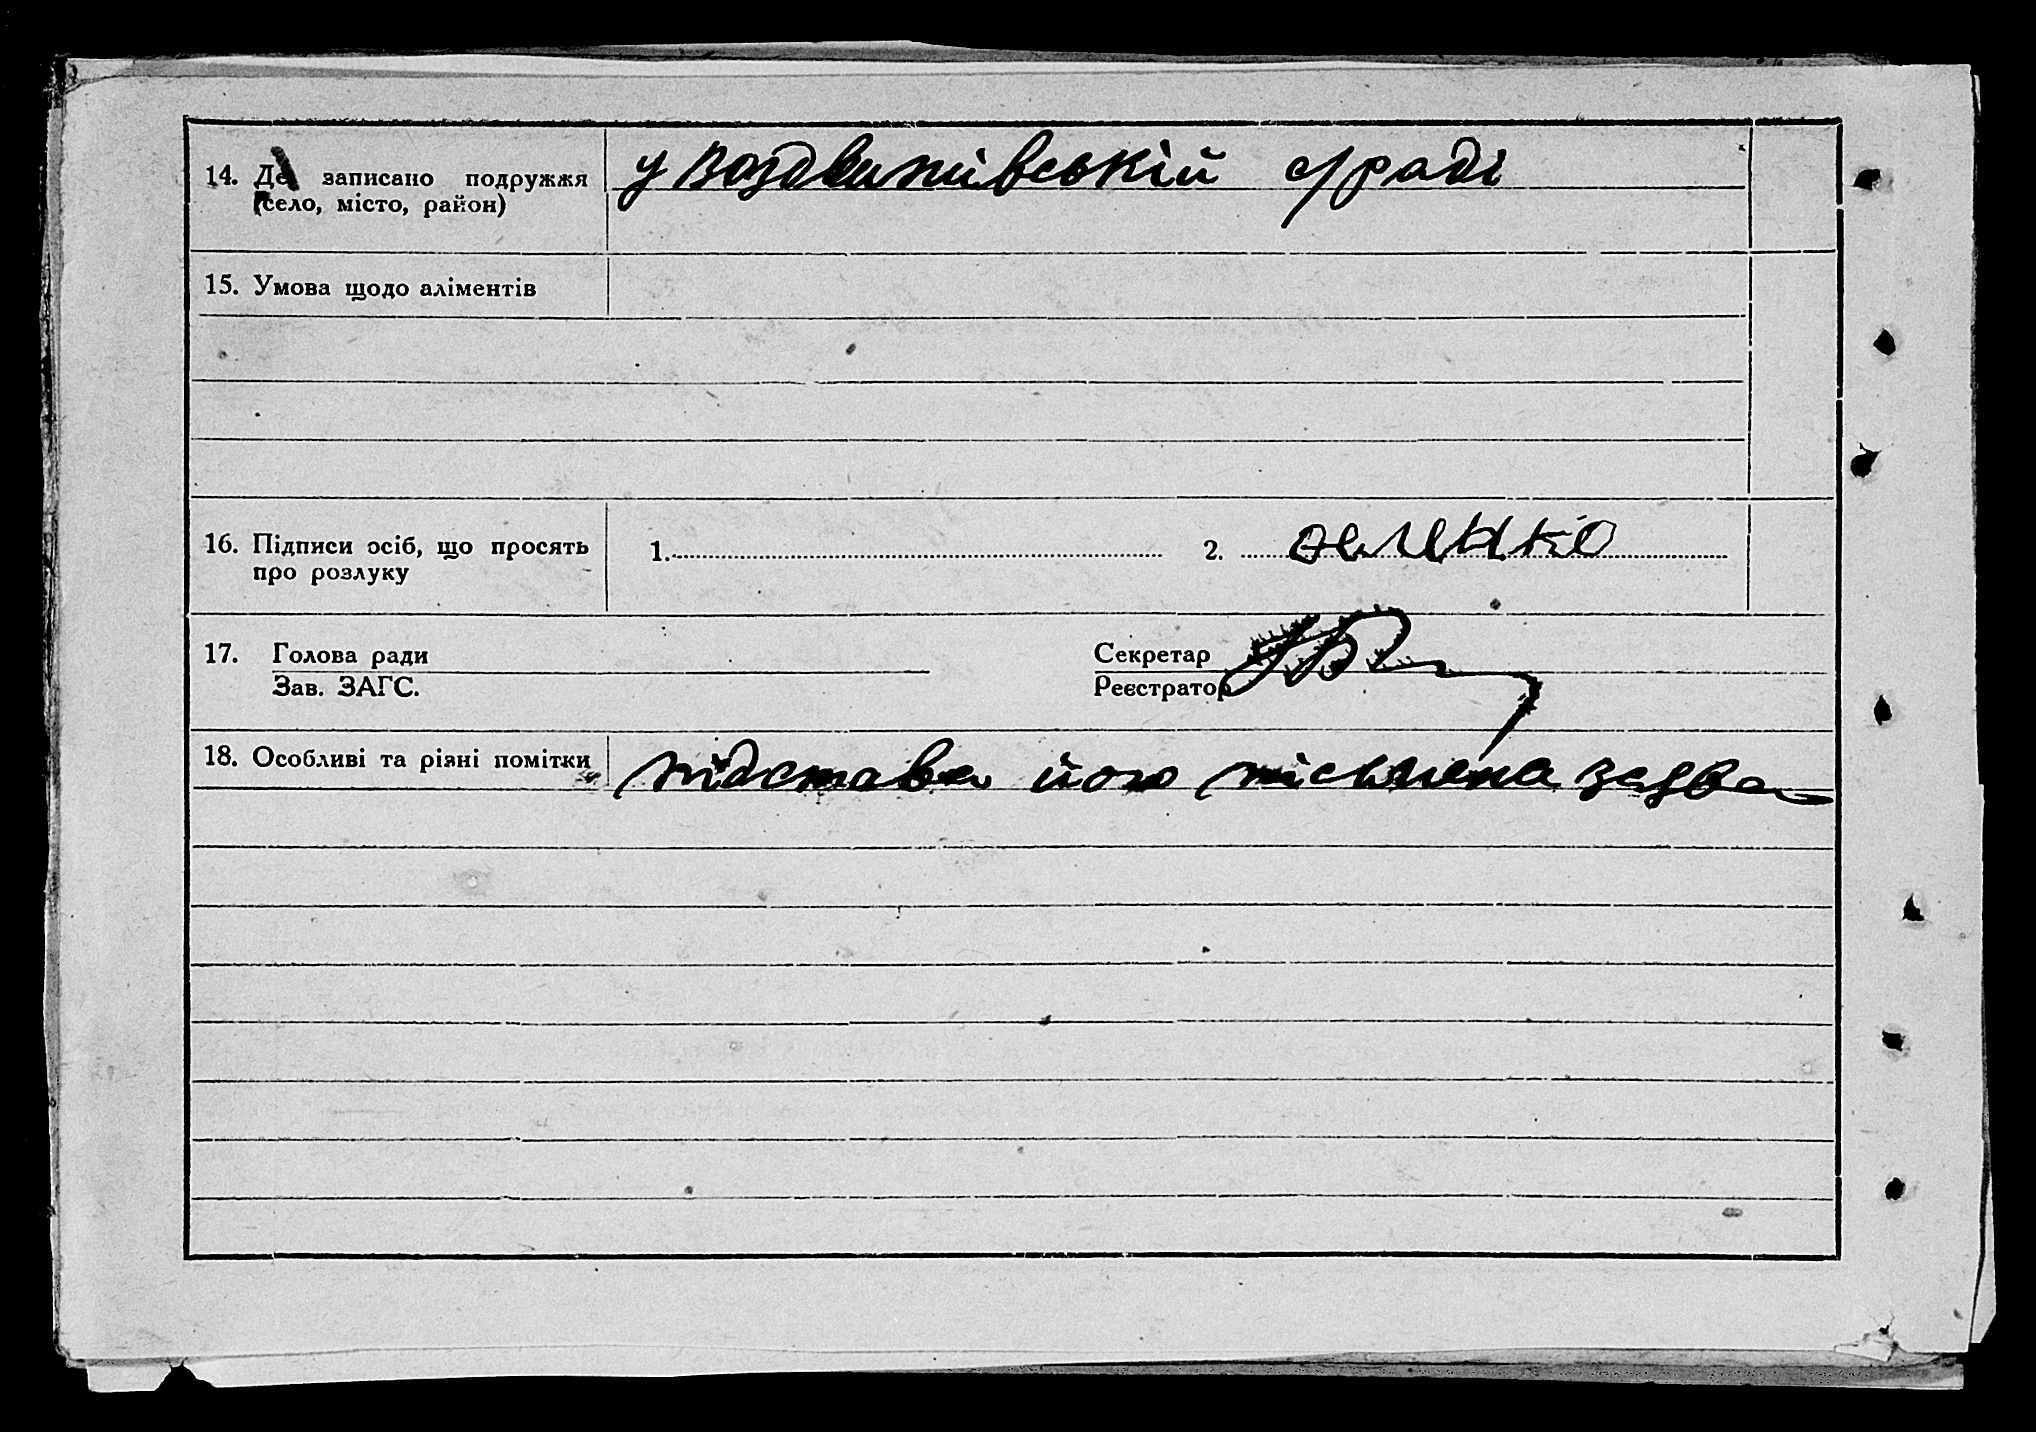 14. Де записано подружжя у Воздвижівській с/раді
(село, місто, район)
15. Умова щодо аліментів
16. Підписи осіб, що просять 1. 2.
про розлуку
17. Голова ради Секретар
Зав. ЗАГС. Реєстратор
18. Особливі та різні помітки підстава його письмена заява